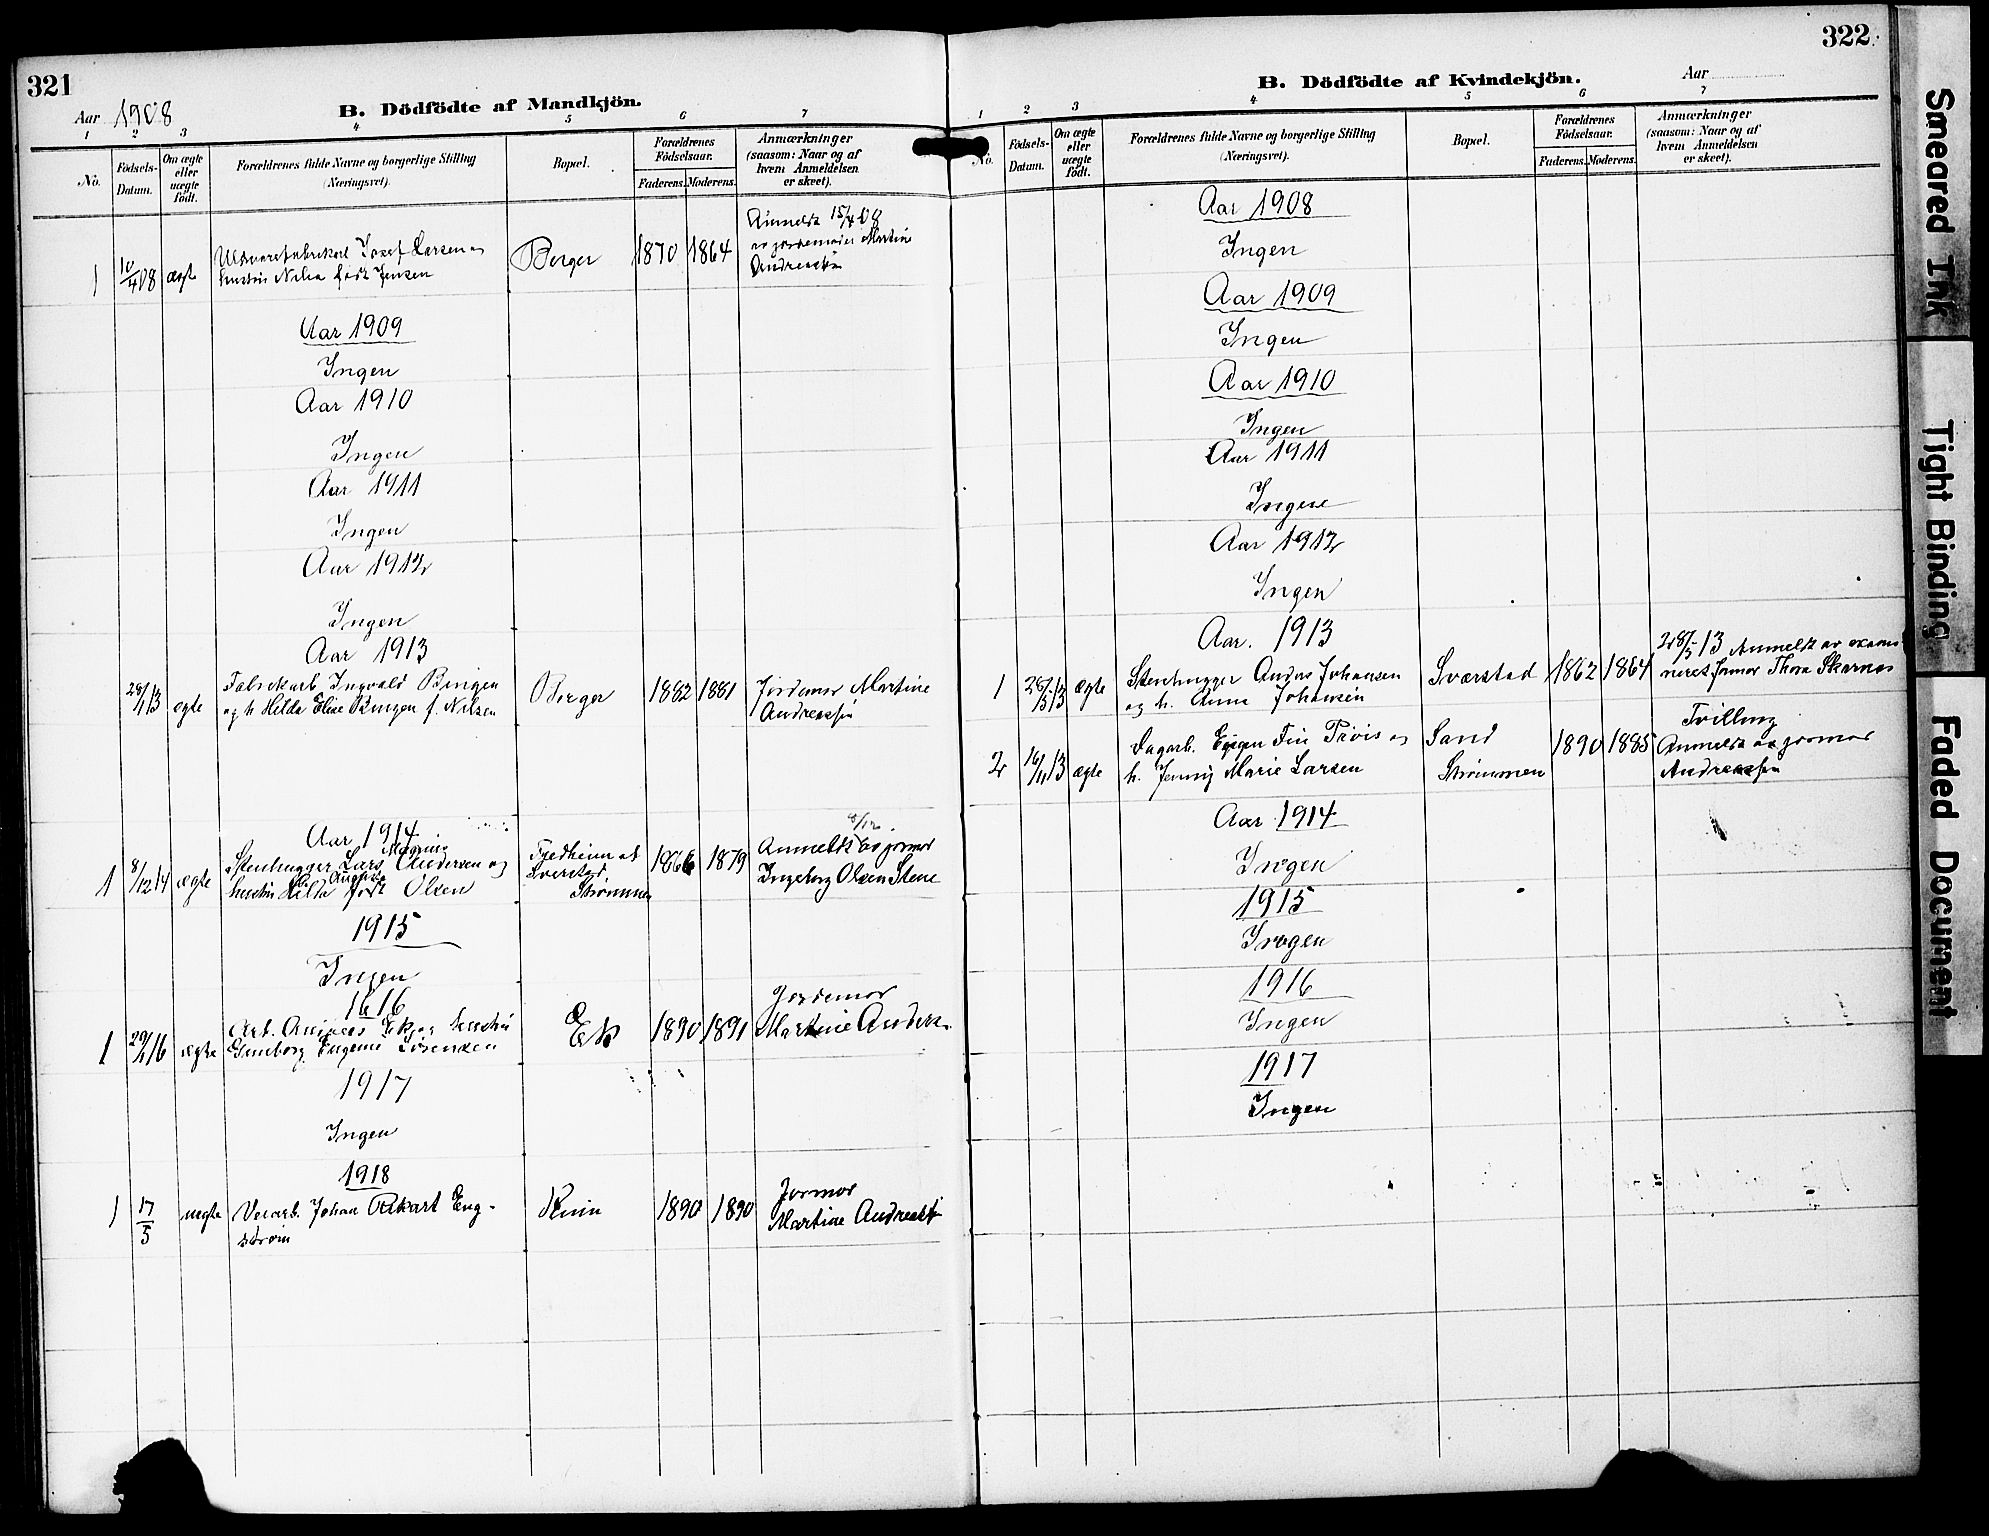 321
Aar 1908
B. Dödfödte af Mandkjön.
1 2 3 4 5 6 7
No.
Födsels-
Datum.
Om ægte
eller
uægte
födt.
Forældrenes fulde Navne og borgerlige Stilling
(Næringsvei).
Bopæl.
Forældrenes
Födselsaar.
Faderens. Moderens.
Anmærkninger
(saasom: Naar og af
hvem Anmeldelsen
er skeet).
1 10/4 08 ægte Uldvarefabrikark Josef Larsen og
hustru født Jensen
Berger 1870 1864
Anmeldt 15/4 08
av jordemoder Martine
Andreassen
Aar 1909
Ingen
Aar 1910
Ingen
Aar 1911
Ingen
Aar 1912
Ingen
Aar 1913
28/1 13 ægte Fabrikarb. Ingvald Bingen
og h Hilda Elise Bingen f. Nilsen
Berger 1882 1881 Jordemor Martine
Andreassen
Aar 1914
1 8/12 14 ægte Stenhugger Lars Magnus Andersen og
hustru Hilda Augusta født Olsen
Fredheim at
Sverstad,
Strømmen
1866 1879
8/12
Anmeldt av jormor
Ingeborg Olsen Stene
1915
Ingen
1616
1 29/1 16 ægte Arb. Andreas Ek og hustru
Gunborg Eugenie Sørensen
Ek 1890 1891
Jordemor
Martine Anders.
1917
Ingen
1918
1 17/5 uegte Verarb. Johan Rikart Eng-
strøm
1890 1890
Jormor
Martine Andreass
322.
B. Dödfödte af Kvindekjön.
Aar
1 2 3 4 5 6 7
No.
Födsels-
Datum.
Om ægte
eller
uægte
födt.
Forældrenes fulde Navne og borgerlige Stilling
(Næringsvei).
Bopæl.
Forældrenes
Födselsaar.
Faderens. Moderens.
Anmærkninger
(saasom: Naar og af
hvem Anmeldelsen
er skeet).
Aar 1908
Ingen
Aar 1909
Ingen
Aar 1910
Ingen
Aar 1911
Ingen
Aar 1912
Ingen
Aar. 1913
1 28/5 13 ægte Stenhugger Anders Johansen
og h. Anna Johansen
Sværstad 1862 1864
28/5 13 Anmeldt av exami
neret jormor Thora Skarnas
2 16/11 13 ægte Sagarb. Fin og
h. Jenny Marie Larsen
Sand
Strømmen
1890 1885
Tvilling
Anmeldt av jormor
Andreassen
Aar 1914
Ingen
1915
Ingen
1916
Ingen
1917
Ingen
Smeared Ink
Tight Binding
Faded Document